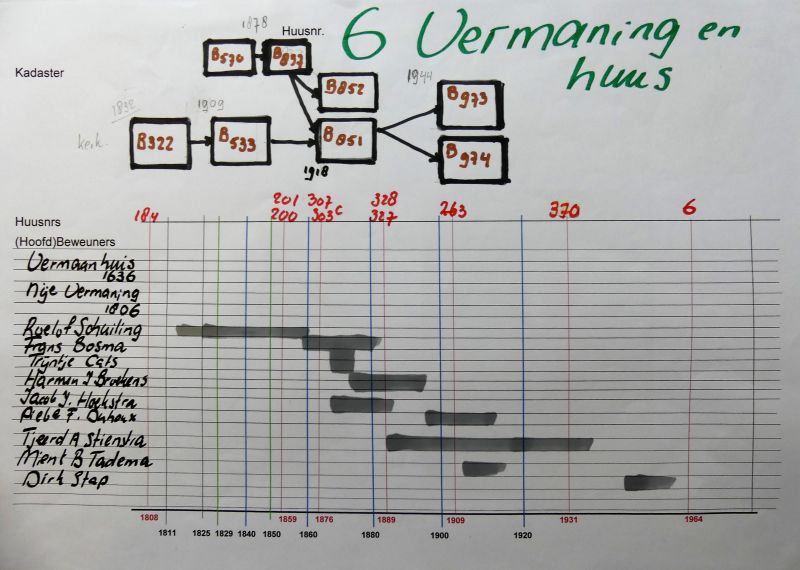 Huusnr. 6 Vermaning en
huus
Kadaster
1878
B570 B897
B852
1944
B973
1832 1909
kerk. B322 B533 B851
B974
1918
Huusnrs 184 201 200 307 303c 328 327 263 370 6
(Hoofd)Beweuners
Vermaanhuis
1636
Nije Vermaning
1806
Roelof Schuiling
Frans Bosma
Tryntje Cats
Harmen J Broekens
Jacob Y. Hoekstra
Tjeerd A Stienstra
Mient B Tadema
Dirk Stap
1808 1859 1876 1889 1909 1931 1964
1811 1825 1829 1840 1850 1860 1880 1900 1920